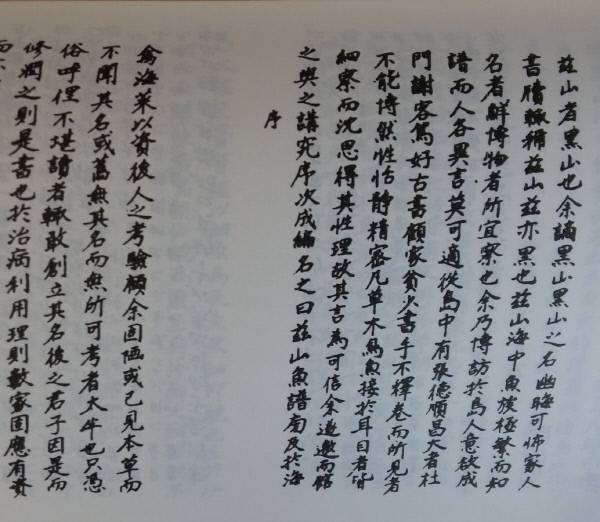 玆山者黑山也余謫黑山黑山之名幽晦可怖家人
書牘輒稱玆山玆亦黑也玆山海中魚族極繁而知
名者鮮博物者所宜察也余乃博訪於島人意欲成
譜而人各異言莫可適從島中有張德順昌大者杜
門謝客篤好古書顧家貧少書手不釋卷而所見者
不能博然性恬靜精密凡草木鳥魚接於耳目者皆
細察而沈思得其性理故其言為可信余遂邀而館
之與之講究序次成編名之曰玆山魚譜旁及於海
序
禽海菜以資後人之考驗顧余固陋或已見本草而
不聞其名或舊無其名而無所可考者太半也只憑
俗呼俚不堪讀者輒敢創立其名後之君子因是而
修潤之則是書也於治病利用理則數家固應有資